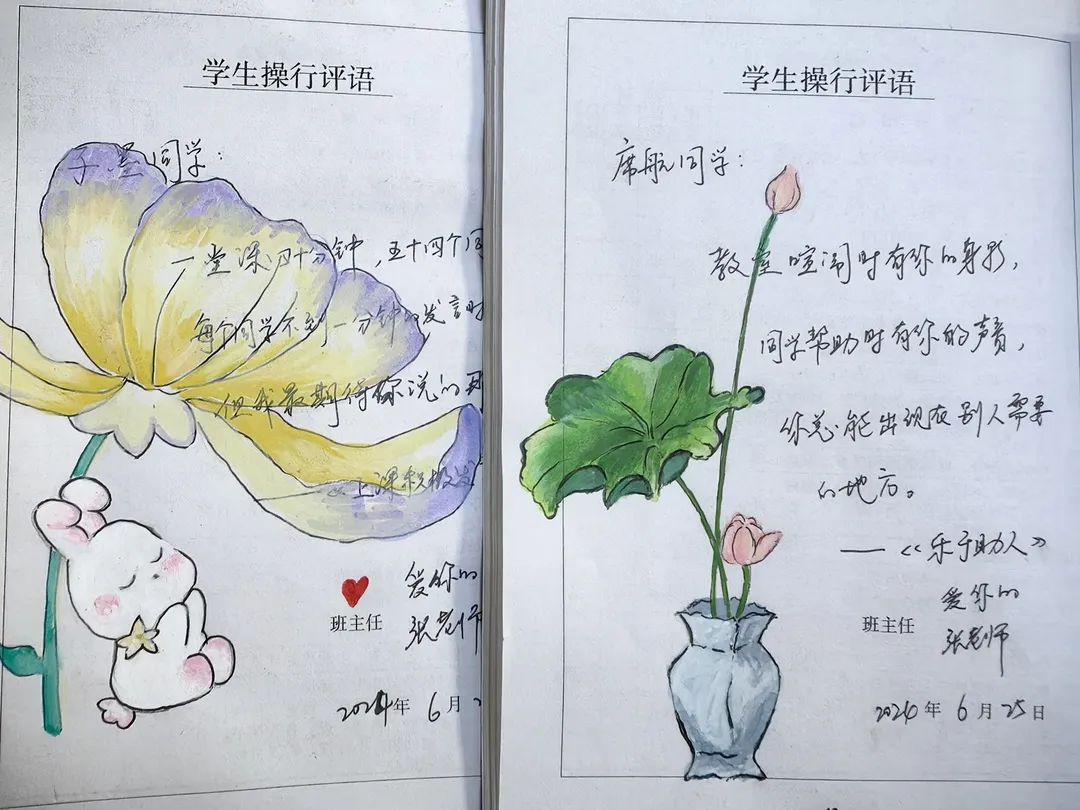 学生操行评语
同学：
一堂课，四十分钟，五十四个同
每个同学不到一分钟的发言时
但我最期待你说的
上课积极发
爱你的
班主任
张老师
2024年 6月
学生操行评语
席航同学：
教室喧闹时有你的身影，
同学帮助时有你的声音，
你总能出现在别人需要
的地方。
——《乐于助人》
爱你的
班主任
张老师
2024年 6月25日